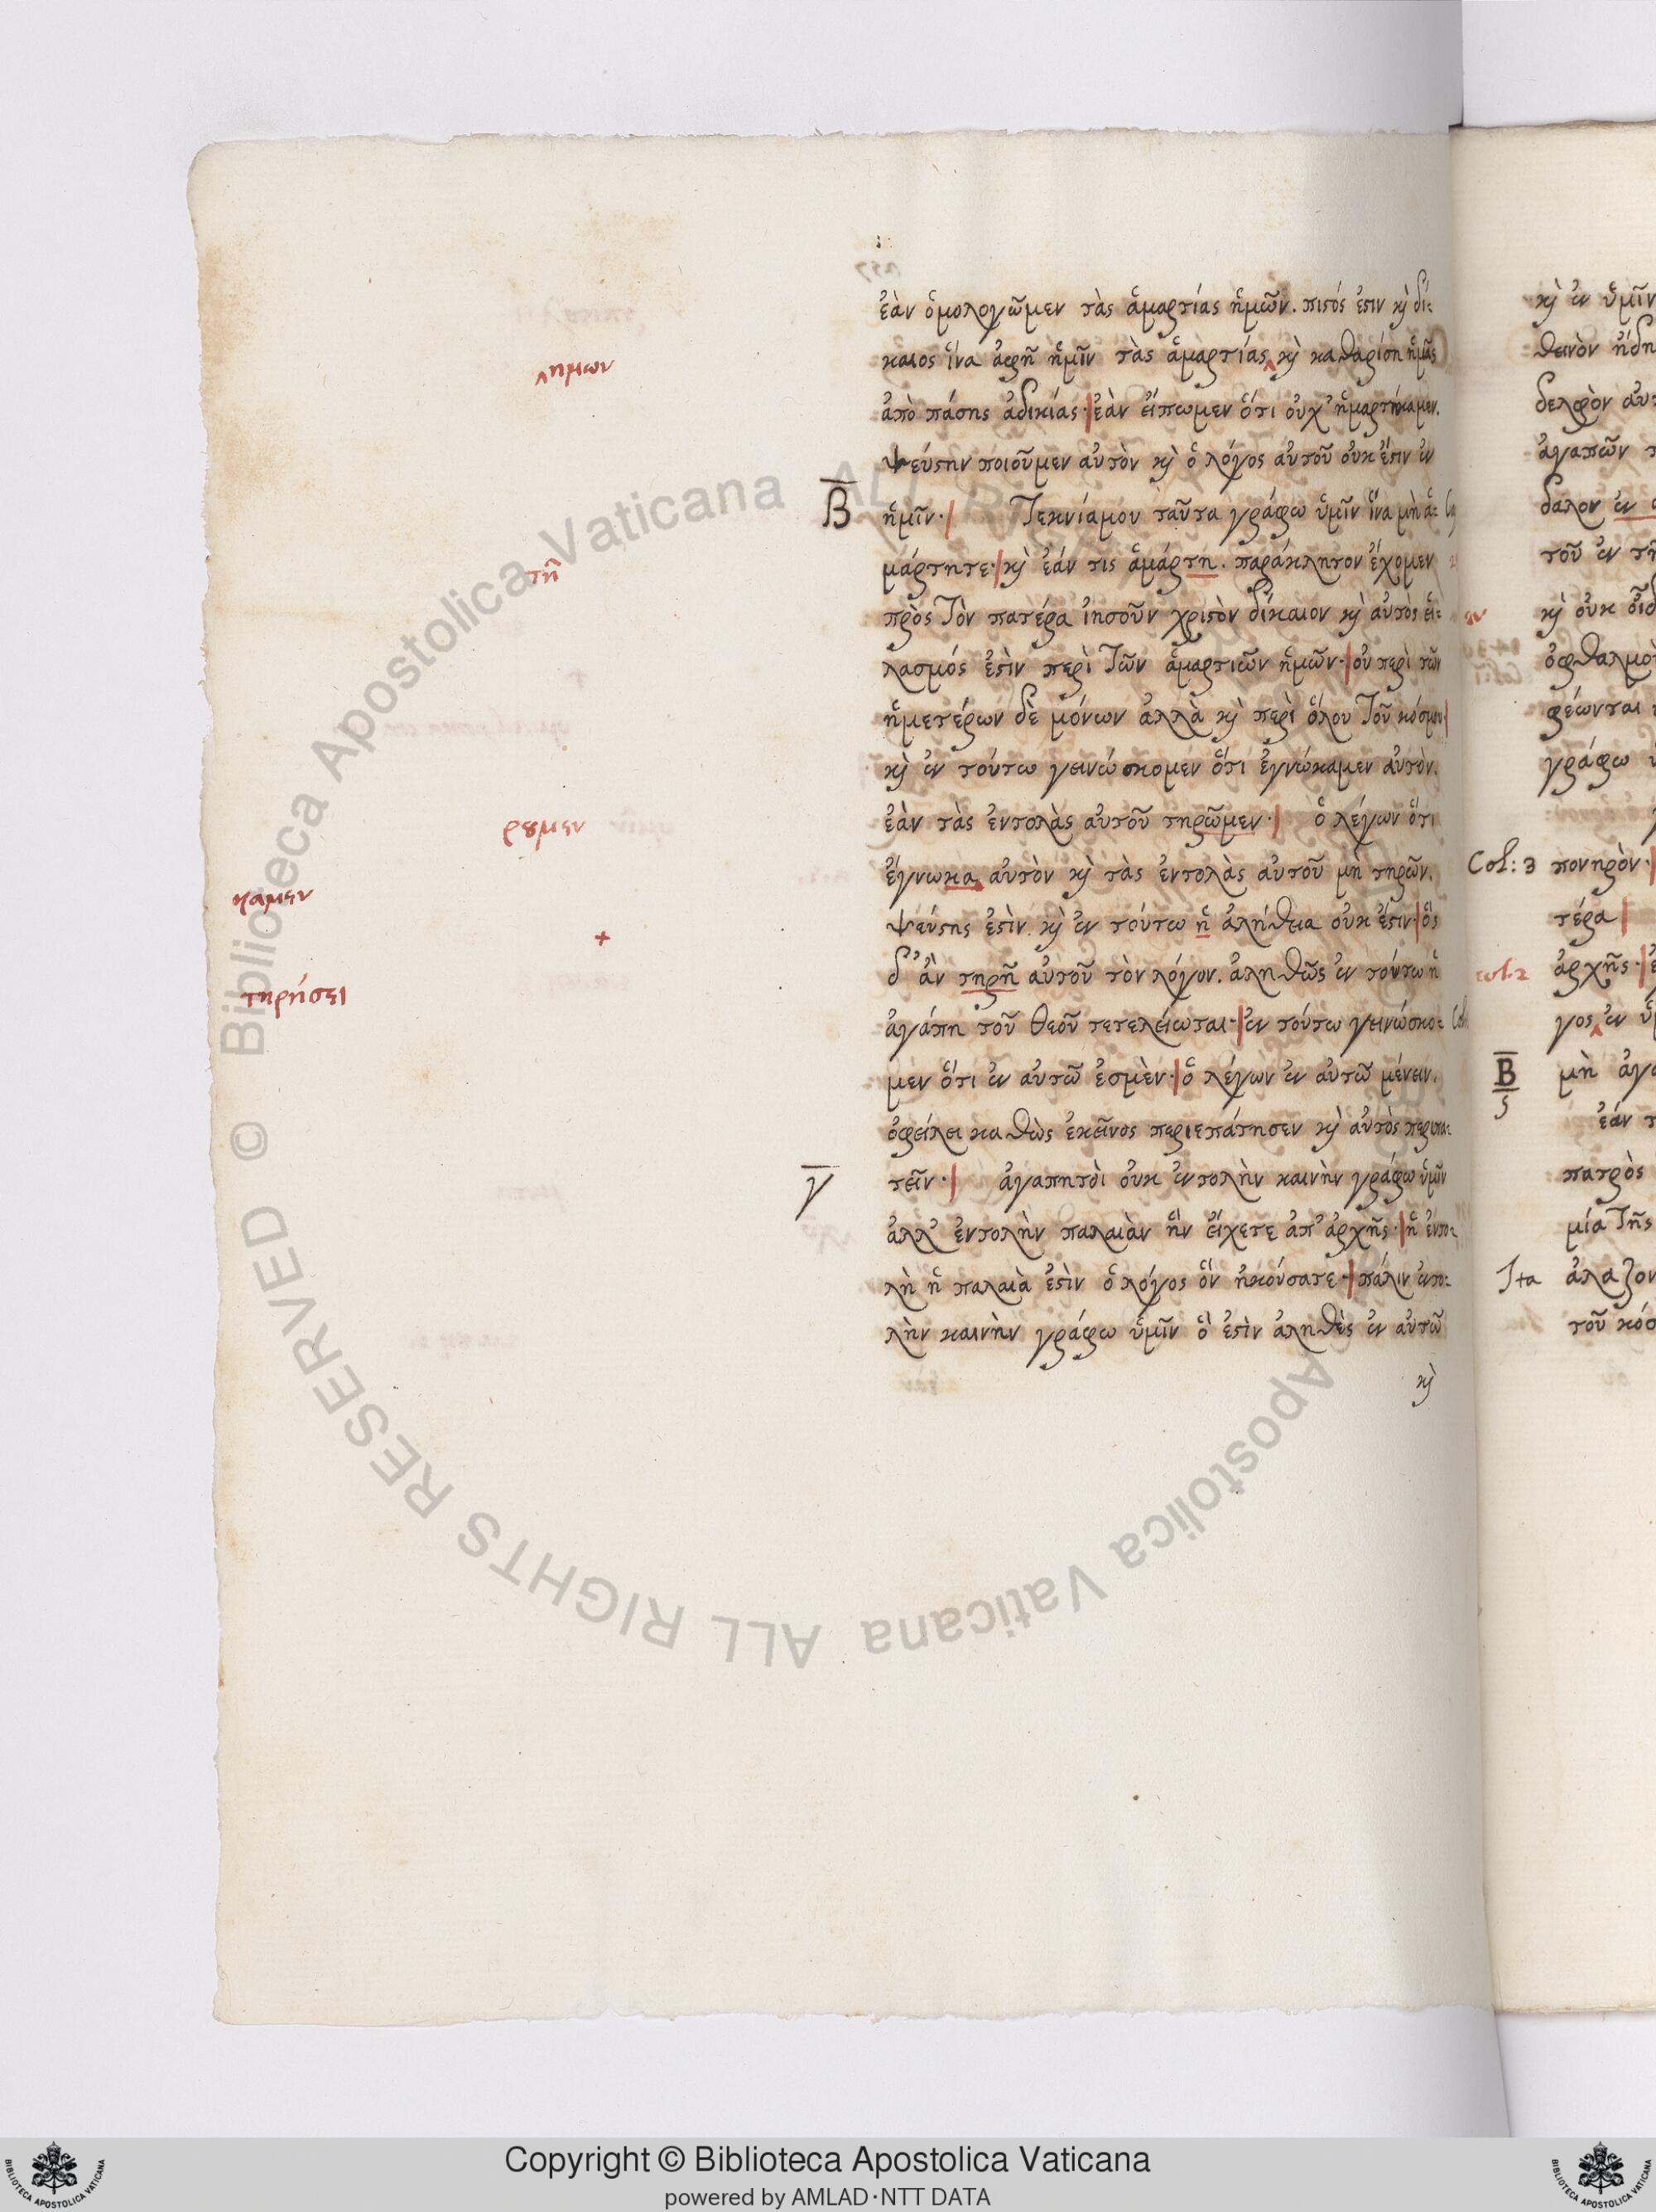 ἐὰν ὁμολογῶμεν τὰς ἁμαρτίας ἡμῶν. πιστός ἐστιν κὶ δί-
καιος ἵνα ἀφῇ ἡμῖν τὰς ἁμαρτίας ‸ κὶ καθαρίση ἡμᾶς
‸ημων
ἀπὸ πάσης ἀδικίας·| ἐὰν εἴπωμεν ὅτι οὐχ' ἡμαρτήκαμεν.
ψεύστην ποιοῦμεν αὐτὸν κὶ ὁ λόγος αὐτοῦ οὐκ ἔστιν ἐν
Β
ἡμῖν·| Τεκνίαμου ταῦτα γράφω ὑμῖν ἵνα μὴ ἁ-
μάρτητε·| κὶ ἐάν τις ἁμάρτη. παράκλητον ἔχομεν
τῆ
πρὸς Τὸν πατέρα ἰησοῦν χριστὸν δίκαιον κὶ αὐτὸς εἱ-
λασμός ἐστὶν περὶ Τῶν ἁμαρτιῶν ἡμῶν·| οὐ περὶ τῶν
ἡμετέρων δὲ μόνων ἀλλὰ κὶ περὶ ὅλου Τοῦ κόσμου|
κὶ ἐν τούτω γεινώσκομεν ὅτι ἐγνώκαμεν αὐτὸν.
ἐὰν τὰς ἐντολὰς αὐτοῦ τηρῶμεν·| ὁ λέγων ὅτι
ρουμεν
ἔγνωκα αὐτὸν κὶ τὰς ἐντολὰς αὐτοῦ μὴ τηρῶν.
καμεν
ψεύστης ἐστὶν. κὶ ἐν τούτω ἡ ἀλήθεια οὐκ ἔστιν·| ὃς
+
δ' ἂν τηρῆ αὐτοῦ τὸν λόγον. ἀληθῶς ἐν τούτω ἡ
τηρήσει
ἀγάπη τοῦ θεοῦ τετελείωται·| ἐν τούτω γεινώσκο-
μεν ὅτι ἐν αὐτῶ ἐσμὲν·| ὁ λέγων ἐν αὐτῶ μένειν.
ὀφείλει καθὼς ἐκεῖνος περιεπάτησεν κὶ αὐτὸς περιπα-
γ
τεῖν·| ἀγαπητὸι οὐκ ἐντολὴν καινὴν γράφω ὑμῖν
ἀλλ' ἐντολὴν παλαιὰν ἣν εἴχετε ἀπ' ἀρχῆς·| ἡ ἐντο-
λὴ ἡ παλαιὰ ἐστὶν ὁ λόγος ὃν ἠκούσατε·| πάλιν ἐντο-
λὴν καινὴν γράφω ὑμῖν ὃ ἐστὶν ἀληθὲς ἐν αὐτῶ
κὶ
κὶ ἐν ὑμῖν
θεινὸν ἤδη
δελφὸν αὐτ
ἀγαπῶν τ
δαλον ἐν
τοῦ ἐν τῆ
κὶ οὐκ οἶδ
ὀφθαλμο
φέωνται
γράφω
Col: 3 πονηρὸν·|
τέρα |
col. 2 ἀρχῆς·|
γος ‸ ἐν ὑ
Β
ς
μὴ ἀγα
ἐάν τ
πατρὸς
μία Τῆς
Ita ἀλαζον
τοῦ κόσ
© Biblioteca Apostolica Vaticana ALL RIGHTS RESERVED
Copyright © Biblioteca Apostolica Vaticana
powered by AMLAD·NTT DATA
BIBLIOTECA APOSTOLICA VATICANA
BIBLIOTECA APOSTOLICA VATICANA